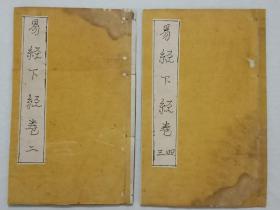 易經下經卷二
易經下經卷三四